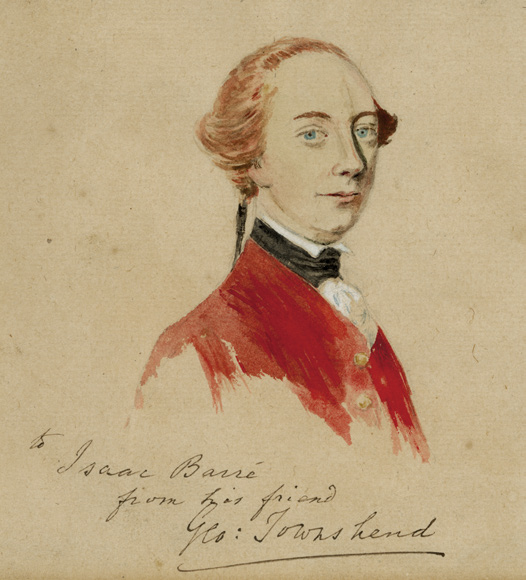 to
Isaac Barré
from his friend
Geo: Townshend